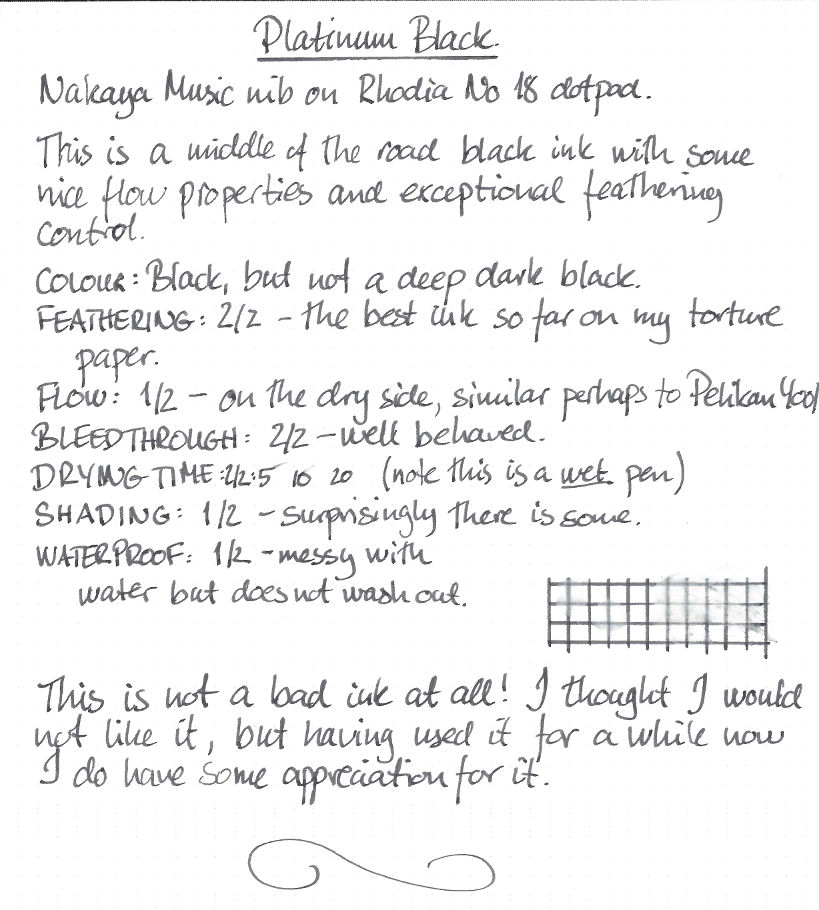 Platinum Black.
Nakaya Music nib on Rhodia No 18 dotpad.
This is a middle of the road black ink with some
nice flow properties and exceptional feathering
control.
COLOUR: Black, but not a deep dark black.
FEATHERING: 2/2 - the best ink so far on my torture
paper.
FLOW: 1/2 - on the dry side, similar perhaps to Pelikan 4001
BLEEDTHROUGH: 2/2 - well behaved.
DRYING TIME: 2/2: 5 10 20 (note this is a wet pen)
SHADING: 1/2 - surprisingly there is some.
WATERPROOF: 1/2 - messy with
water but does not wash out.
This is not a bad ink at all! I thought I would
not like it, but having used it for a while now
I do have some appreciation for it.